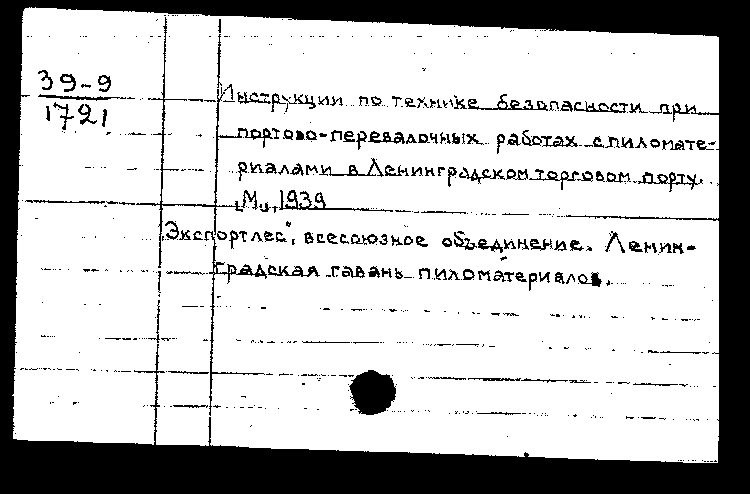 39-9
1721
Инструкции по технике безопасности при
портово-перевалочных работах с пиломате-
риалами в Ленинградском торговом порту.
М., 1939
„Экспортлес", всесоюзное объединение. Ленин-
градская гавань пиломатериалов.